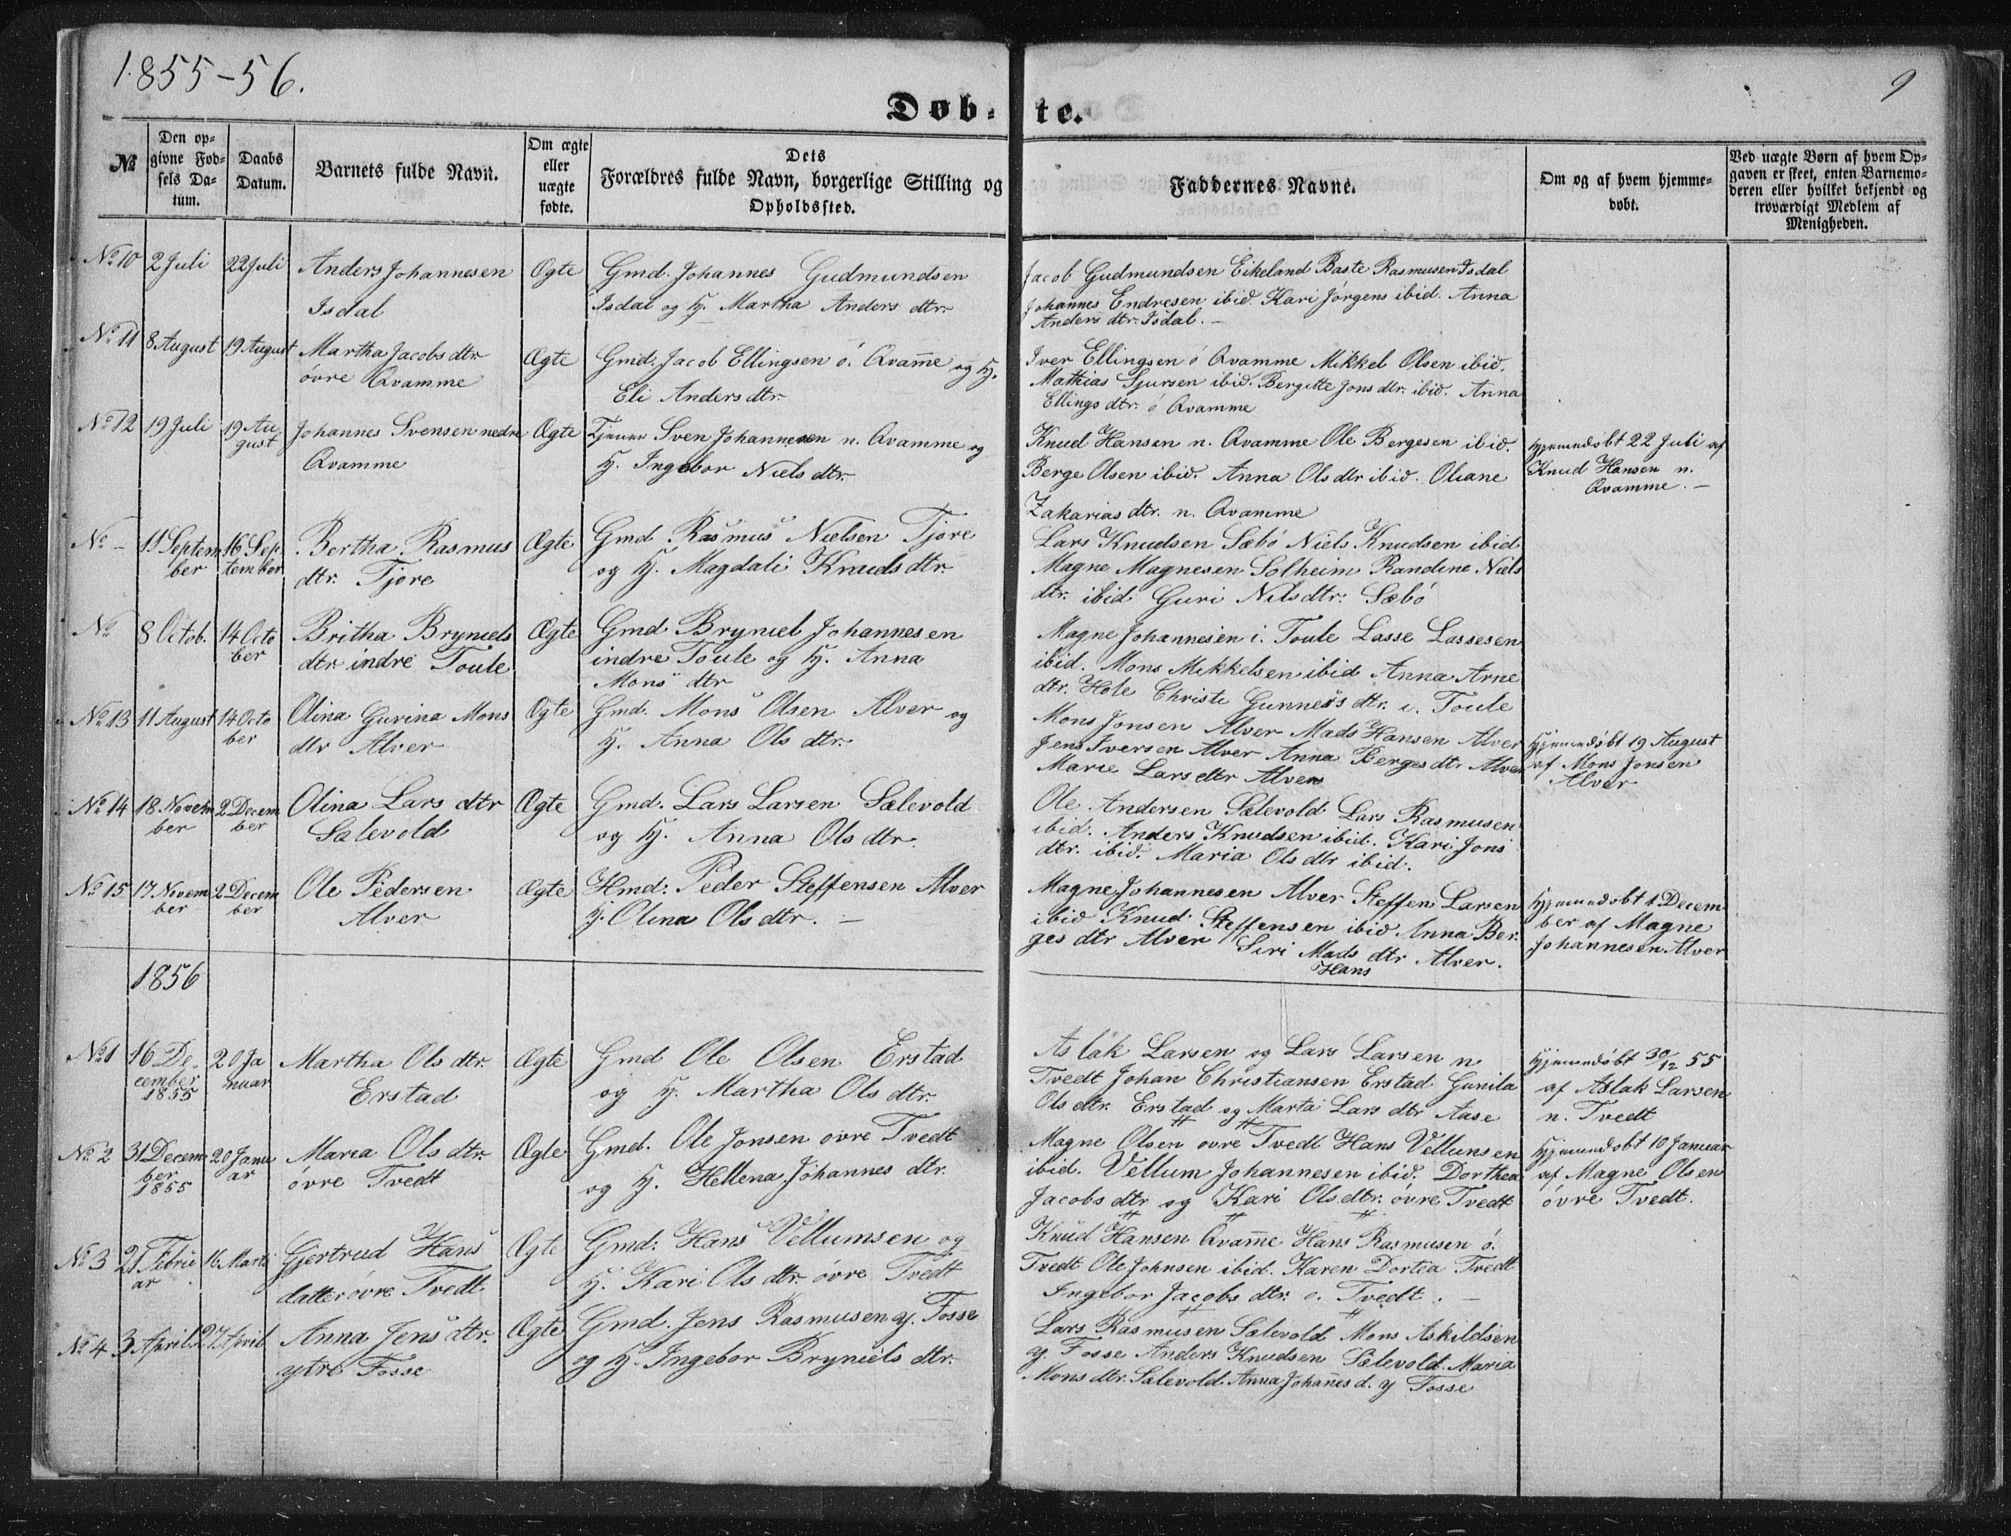 1855-56.
9
Døb-te.
No
Den op-
givne Fød-
sels Da-
tum.
Daabs
Datum.
Barnets fulde Navn.
Om ægte
eller
uægte
fødte.
Dets
Forældres fulde Navn, borgerlige Stilling og
Opholdssted.
Faddernes Navne.
Om og af hvem hjemme-
døbt.
Ved uægte Børn af hvem Op-
gaven er skeet, enten Barnemo-
deren eller hvilket bekjendt og
troværdigt Medlem af
Menigheden.
No 10 2 Juli 22 Juli Anders Johannesen
Isdal
Ægte
Gmd. Johannes Gudmundsen
Isdal og H. Martha Anders dtr.
Jacob Gudmundsen Eikeland Baste Rasmusen Isdal
Johannes Endresen ibid. Kari Jørgens ibid. Anna
Anders dtr. Isdal. -
No 11 8 August 19 August Martha Jacobs dtr.
øvre Qvamme
Ægte
Gmd. Jacob Ellingsen ö. Qvam̅e og H.
Eli Anders dtr.
Iver Ellingsen ö Qvamme Mikkel Olsen ibid.
Mathias Sjursen ibid. Bergitte Jons dtr. ibid. Anna
Ellings dtr. ö Qvamme
No 12 19 Juli 19 Au
gust
Johannes Svensen nedre
Qvamme
Ægte
Tjener Sven Johannesen n. Qvamme og
H. Ingebor Niels dtr.
Knud Hansen n. Qvamme Ole Bergesen ibid.
Berge Olsen ibid. Anna Ols dtr ibid. Oliane
Zakarias dtr. n. Qvamme
Hjemmedøbt 22 Juli af
Knud Hansen n.
Qvamme. -
No - 11 Septem
ber
16 Sep
tember
Bertha Rasmus
dtr. Tjore
Ægte
Gmd Rasmus Nielsen Tjore
og H. Magdali Knuds dtr.
Lars Knudsen Sæbö Niels Knudsen ibid
Magne Magnesen Solheim Randine Niels
dtr. ibid Guri Nilsdtr. Sæbö
No 8 Octob. 14 Octo
ber
Britha Bryniels
dtr indre Toule
Ægte
Gmd Bryniel Johannesen
indre Toule og H. Anna
Mons dtr
Magne Johannesen i. Toule Lasse Lassesen
ibid. Mons Mikkelsen ibid Anna Arne
dtr. Hole Christi Gunners dtr. i. Toule
No 13 11 August 14 Octo
ber
Olina Gurina Mons
dtr Alver
Ægte
Gmd. Mons Olsen Alver og
H. Anna Ols dtr.
Mons Jonsen Alver Mads Hansen Alver
Jens Iversen Alver Anna Berges dtr Alver
Marie Lars dtr Alver
Hjemmedøbt 19 August
af Mons Jonsen
Alver
No 14 18 Novem
ber
2 Decem
ber
Olina Lars dtr
Sælevold
Ægte
Gmd. Lars Larsen Sælevold
og H. Anna Ols dtr.
Ole Andersen Sælevold Lars Rasmusen
ibid. Anders Knudsen ibid. Kari Jons
dtr. ibid. Maria Ols dtr ibid.
No 15 17 Novem
ber
2 Decem
ber
Ole Pedersen
Alver
Ægte
Hmd: Peder Steffensen Alver
H. Olina Ols dtr. -
Magne Johannesen Alver Steffen Larsen
ibid Knud Steffensen ibid Anna Ber.
ges dtr Alver Siri Mads dtr Alver.
Hans
Hjemmedøbt 1 Decem
ber af Magne
Johannesen Alver
1856
No 1 16 De-
cember
1855
20 Ja
nuar
Martha Ols dtr.
Erstad
Ægte
Gmd Ole Olsen Erstad
og H. Martha Ols dtr.
Aslak Larsen og Lars Larsen n
Tvedt Johan Christiansen Erstad Gunila
Ols dtr. Erstad og Marta Lars dtr Aase
Hjemmedøbt 30/12 55
af Aslak Larsen
n. Tvedt
No 2 31 Decem
ber
1855
20 Janu
ar
Maria Ols dtr.
øvre Tvedt
Ægte
Gmd. Ole Jonsen øvre Tvedt
og H. Hellena Johannes dtr.
Magne Olsen øvre Tvedt Hans Vellumsen
ibid. Vellum Johannesen ibid. Dorthea
Jacobs dtr og Kari Ols dtr. øvre Tvedt
Hjemmedøbt 10 Januar
af Magne Olsen
øvre Tvedt.
No 3 21 Febru
ar
16 Marts
Gjertrud Hans
datter øvre Tvedt
Ægte
Gmd: Hans Vellumsen og
H. Kari Ols dtr. øvre Tvedt
Knud Hansen Qvam̅e Hans Rasmusen ö.
Tvedt Ole Johnsen ibid. Karen Dortea Tvedt
Ingebor Jacobs dtr. ö. Tvedt. -
No 4 3 April 27 April Anna Jens dtr.
ytre Fosse
Ægte
Gmd. Jens Rasmusen y. Fosse
og H. Ingebor Bryniels dtr.
Lars Rasmusen Sælevold Mons Askildsen
y. Fosse Anders Knudsen Sælevold. Maria
Mons dtr. Sælevold. Anna Johan̅es d. y Fosse